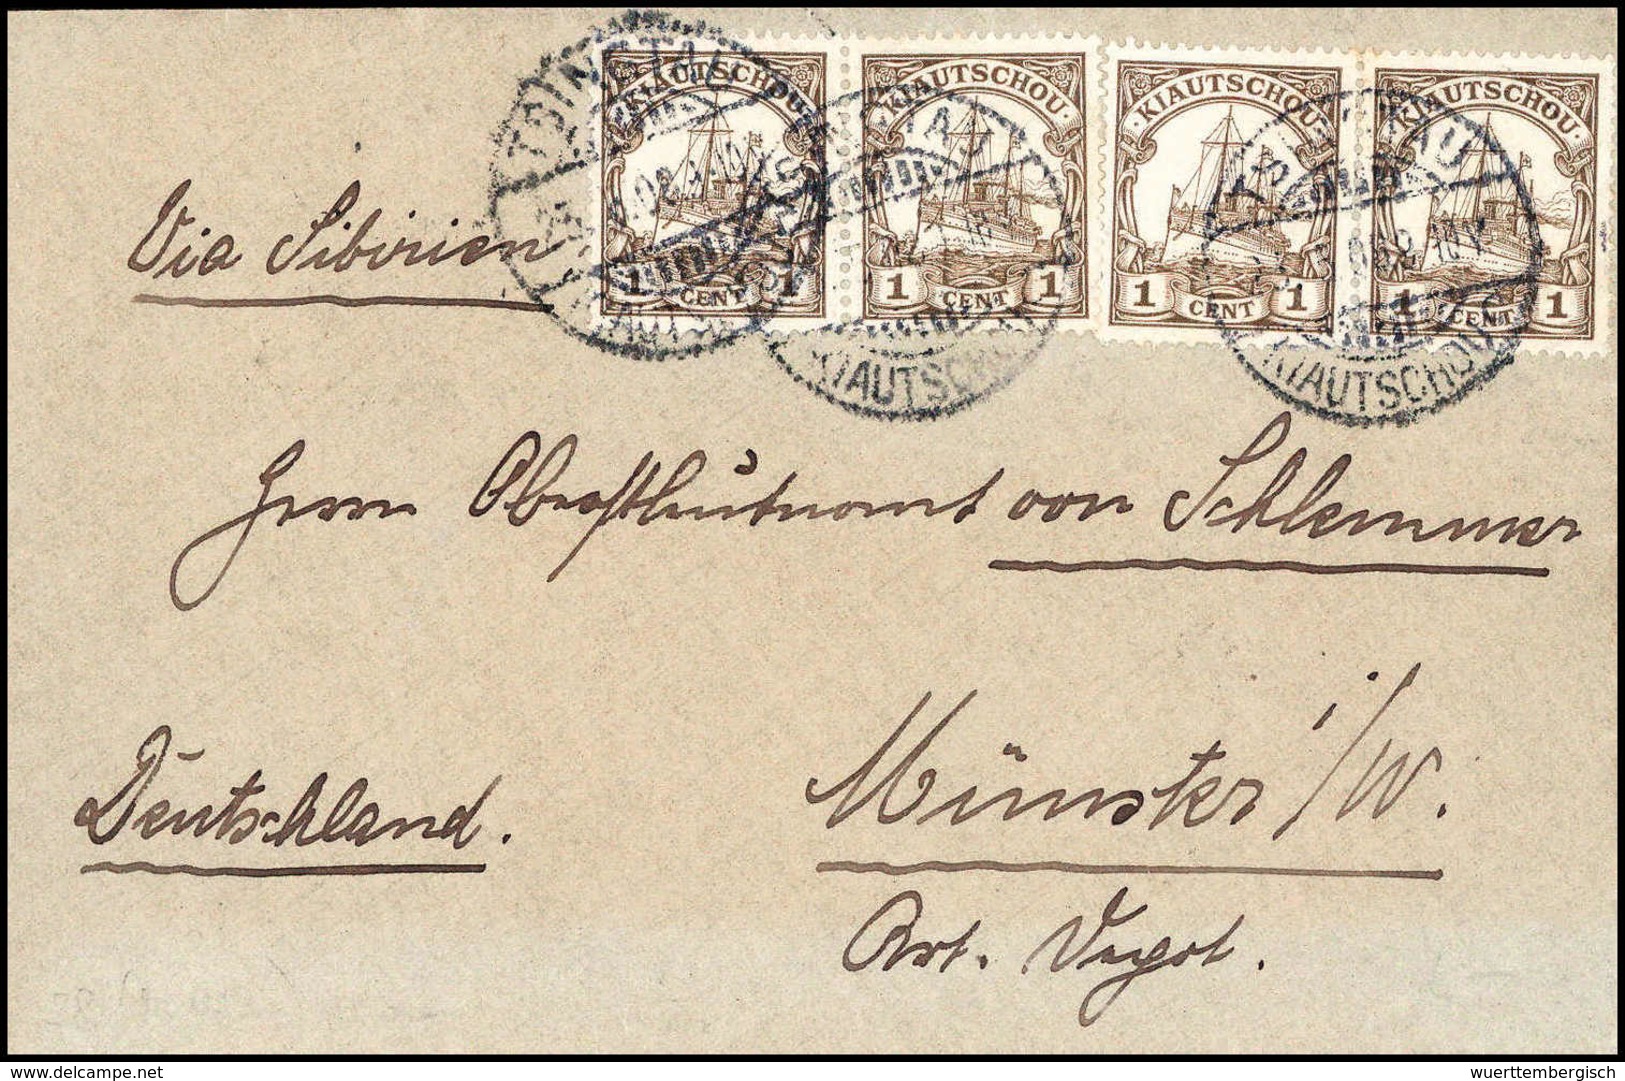 KIAUTSCHOU KIAUTSCHOU KIAUTSCHOU KIAUTSCHOU
1 CENT 1 1 CENT 1 1 CENT 1 1 CENT 1
TSINGTAU
KIAUTSCHOU
KIAUTSCHOU
Via Sibirien
Herrn Oberstleutnant von Schlemmer
Münster i/W.
Deutschland.
Art. Depot.
wuerttembergisch